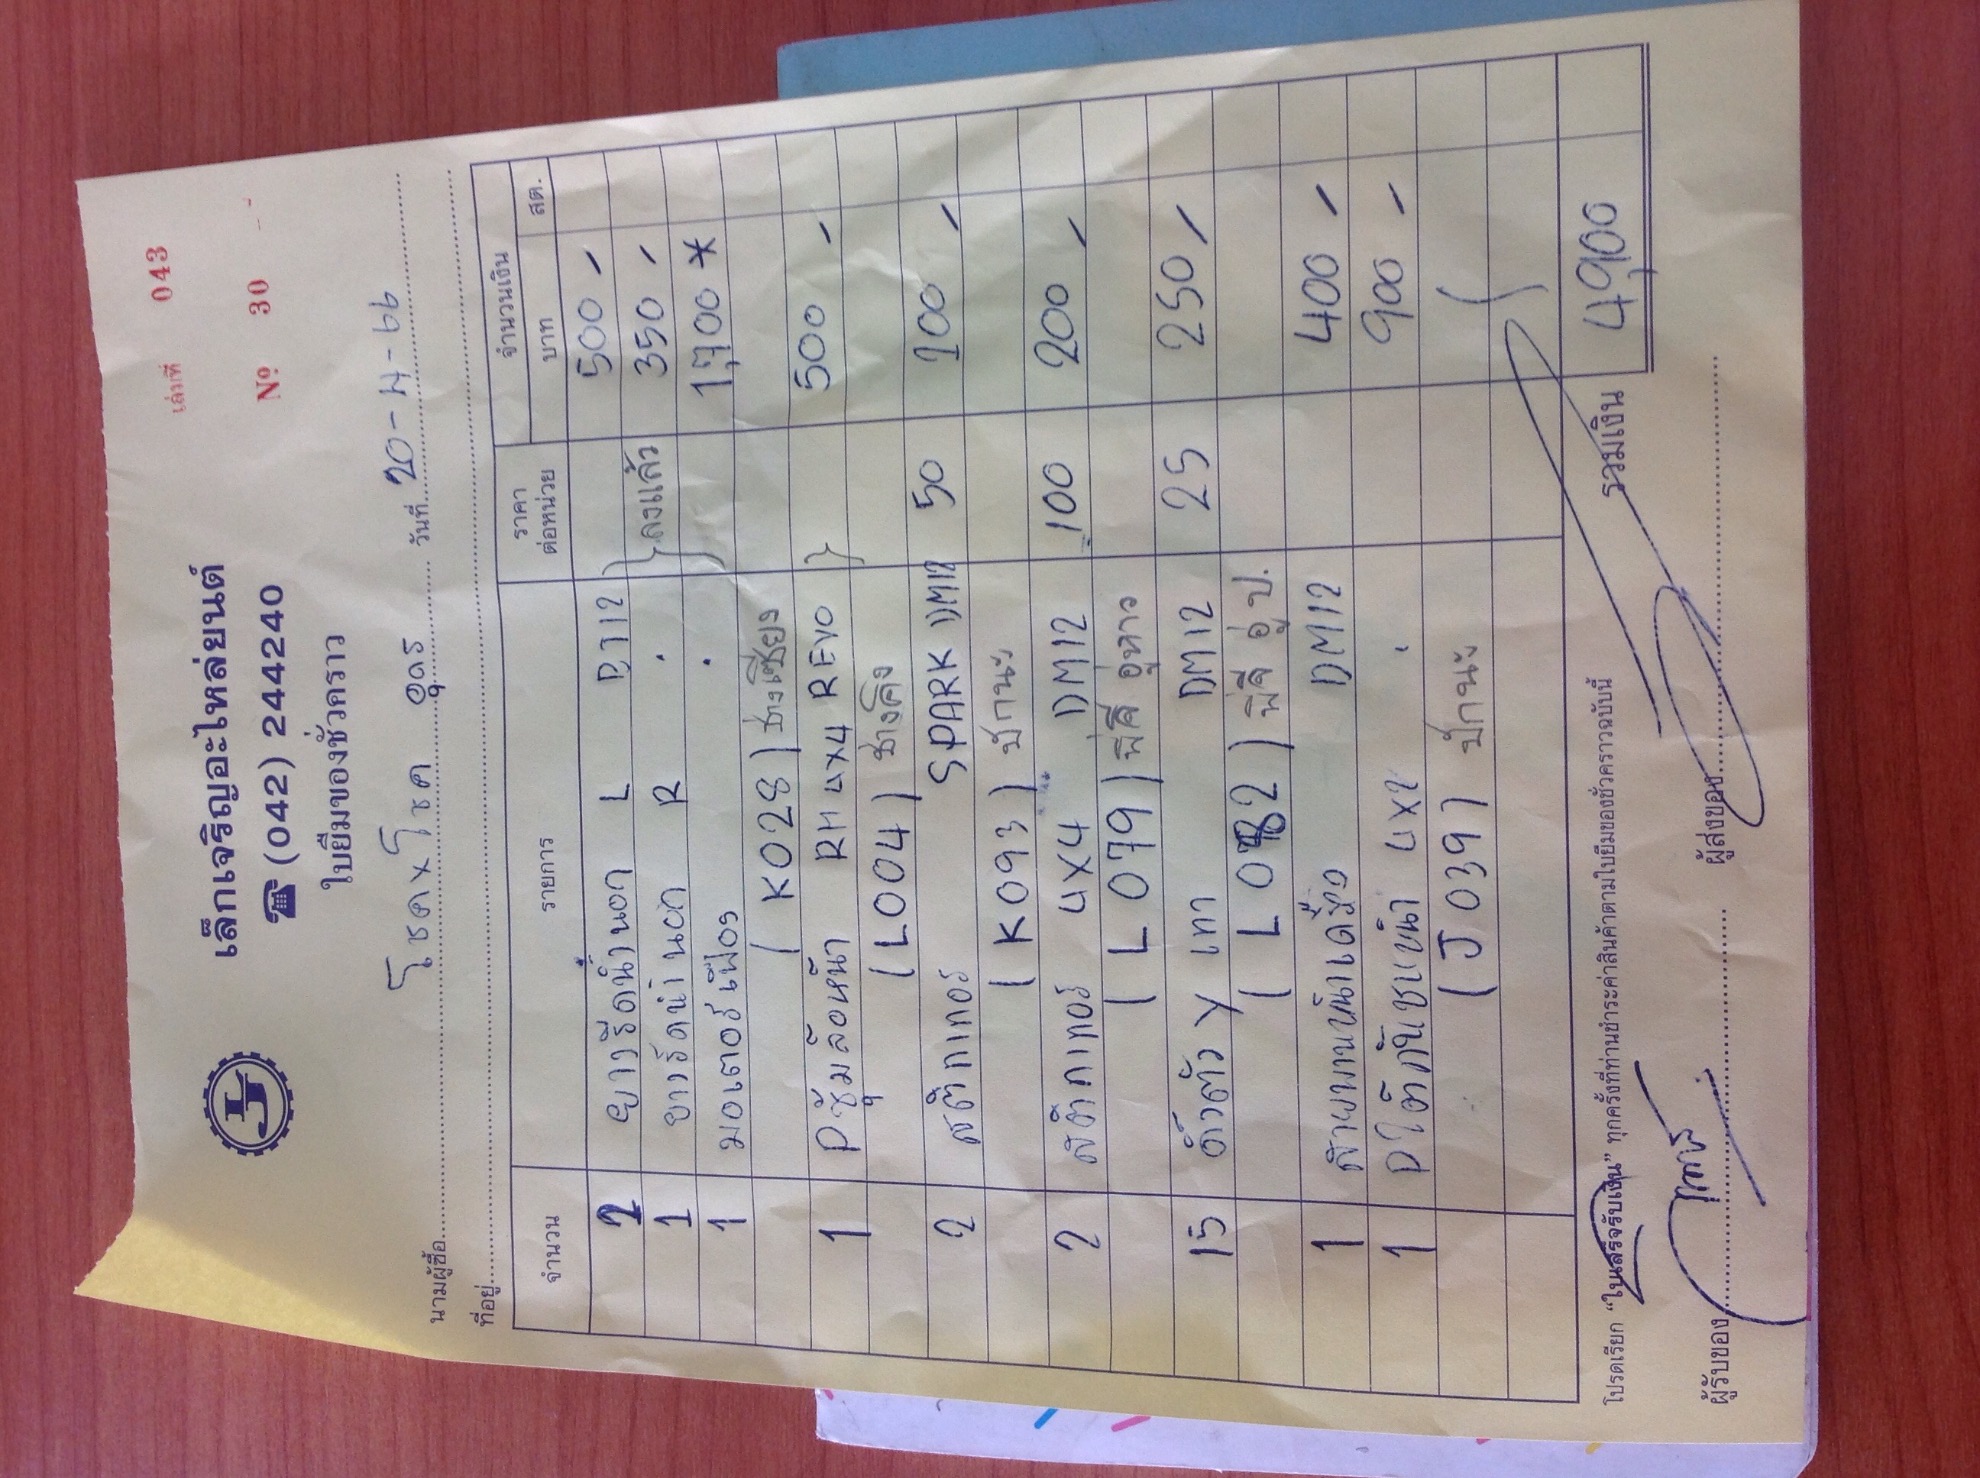 เล่มที่ 043
เล็กเจริญอะไหล่ยนต์
☎ (042) 244240
Nº 30
ใบยืมของชั่วคราว
นามผู้ซื้อ โชคxโชค อุดร วันที่ 20-4-66
ที่อยู่
จำนวน รายการ ราคาต่อหน่วย จำนวนเงิน
บาท สต.
2 ยางรีดน้ำนอก L 500 -
1 ยางรีดน้ำนอก R ลงแล้ว 350 -
1 มอเตอร์เฟือง 1,700 *
(K028) ช่างเซียง
1 Pซุ้มล้อหน้า RH 4x4 REVO 500 -
(L004) ช่างคิง
2 สติกเกอร์ SPARK DM12 50 100 -
(K093) ปักนะ
2 สติกเกอร์ 4x4 DM12 100 200 -
(L079) พี่คี อู่หาว
15 ตัว Y เทา DM12 25 250 -
(L082) พี่จี อู่ ป.
1 สายพานหน้าเดี่ยว DM12 400 -
1 Pใต้กันชนหน้า 4x2 900 -
(J039) ปักนะ
รวมเงิน 4,900
โปรดเรียก "ใบเสร็จรับเงิน" ทุกครั้งที่ท่านชำระค่าสินค้าตามใบยืมของชั่วคราวฉบับนี้
ผู้รับของ ผู้ส่งของ